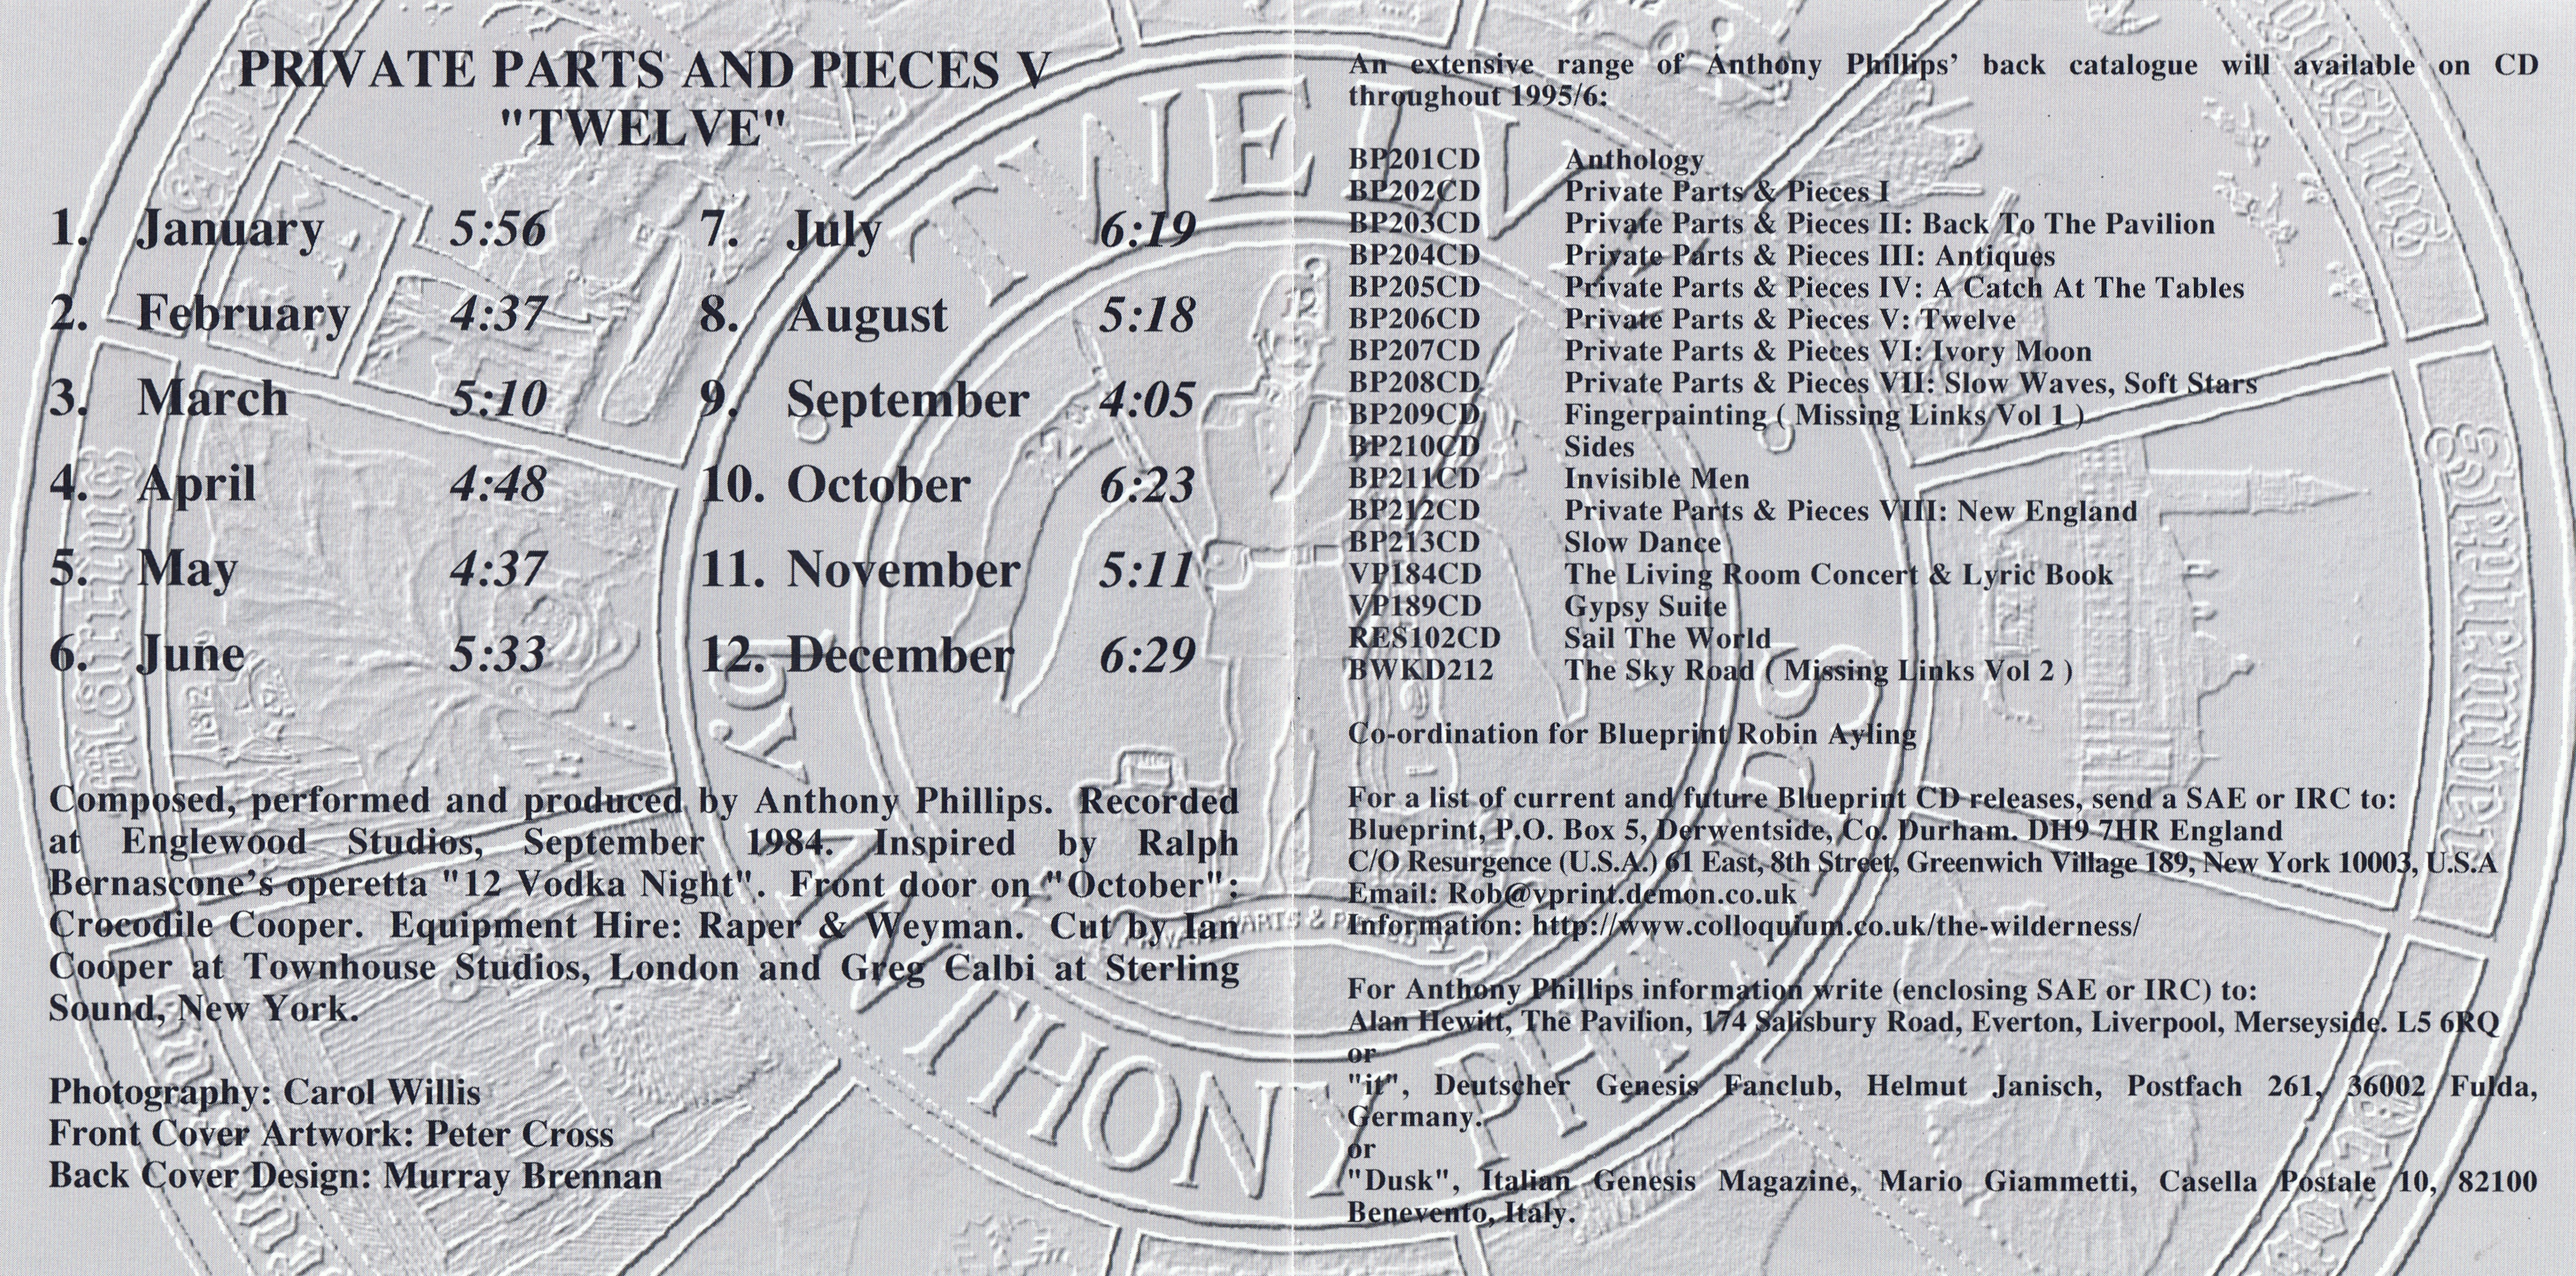 PRIVATE PARTS AND PIECES V
"TWELVE"
1. January 5:56
2. February 4:37
3. March 5:10
4. April 4:48
5. May 4:37
6. June 5:33
7. July 6:19
8. August 5:18
9. September 4:05
10. October 6:23
11. November 5:11
12. December 6:29
Composed, performed and produced by Anthony Phillips. Recorded
at Englewood Studios, September 1984. Inspired by Ralph
Bernascone's operetta "12 Vodka Night". Front door on "October":
Crocodile Cooper. Equipment Hire: Raper & Weyman. Cut by Ian
Cooper at Townhouse Studios, London and Greg Calbi at Sterling
Sound, New York.
Photography: Carol Willis
Front Cover Artwork: Peter Cross
Back Cover Design: Murray Brennan
An extensive range of Anthony Phillips' back catalogue will available on CD
throughout 1995/6:
BP201CD Anthology
BP202CD Private Parts & Pieces I
BP203CD Private Parts & Pieces II: Back To The Pavilion
BP204CD Private Parts & Pieces III: Antiques
BP205CD Private Parts & Pieces IV: A Catch At The Tables
BP206CD Private Parts & Pieces V: Twelve
BP207CD Private Parts & Pieces VI: Ivory Moon
BP208CD Private Parts & Pieces VII: Slow Waves, Soft Stars
BP209CD Fingerpainting ( Missing Links Vol 1 )
BP210CD Sides
BP211CD Invisible Men
BP212CD Private Parts & Pieces VIII: New England
BP213CD Slow Dance
VP184CD The Living Room Concert & Lyric Book
VP189CD Gypsy Suite
RES102CD Sail The World
BWKD212 The Sky Road ( Missing Links Vol 2 )
Co-ordination for Blueprint Robin Ayling
For a list of current and future Blueprint CD releases, send a SAE or IRC to:
Blueprint, P.O. Box 5, Derwentside, Co. Durham. DH9 7HR England
C/O Resurgence (U.S.A.) 61 East, 8th Street, Greenwich Village 189, New York 10003, U.S.A
Email: Rob@vprint.demon.co.uk
Information: http://www.colloquium.co.uk/the-wilderness/
For Anthony Phillips information write (enclosing SAE or IRC) to:
Alan Hewitt, The Pavilion, 174 Salisbury Road, Everton, Liverpool, Merseyside. L5 6RQ
or
"it", Deutscher Genesis Fanclub, Helmut Janisch, Postfach 261, 36002 Fulda,
Germany.
or
"Dusk", Italian Genesis Magazine, Mario Giammetti, Casella Postale 10, 82100
Benevento, Italy.
TWELVE
by
ANTHONY PHILLIPS
PRIVATE PARTS & PIECES V
September